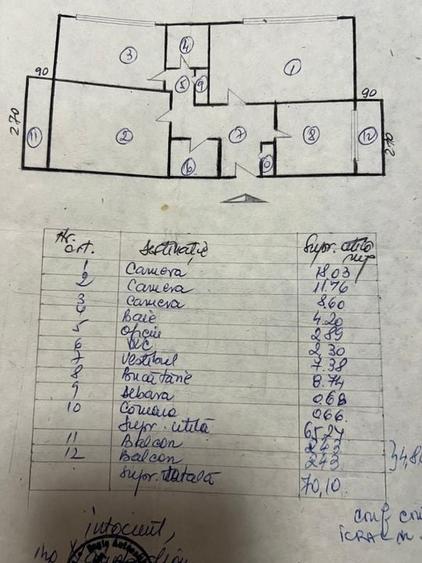 4
3
5
9
1
90
90
270
11
2
7
8
12
270
6
10
Nr. crt. Destinație Supr. utilă mp
1 Camera 18.03
2 Camera 11.76
3 Camera 8.60
4 Baie 4.20
5 Oficiu 2.89
6 WC 2.30
7 Vestibul 7.38
8 Bucătărie 8.74
9 Debara 0.68
10 Cămara 0.66
Supr. utilă 65.24
11 Balcon 2.43
12 Balcon 2.43
Supr. totală 70,10
întocmit,